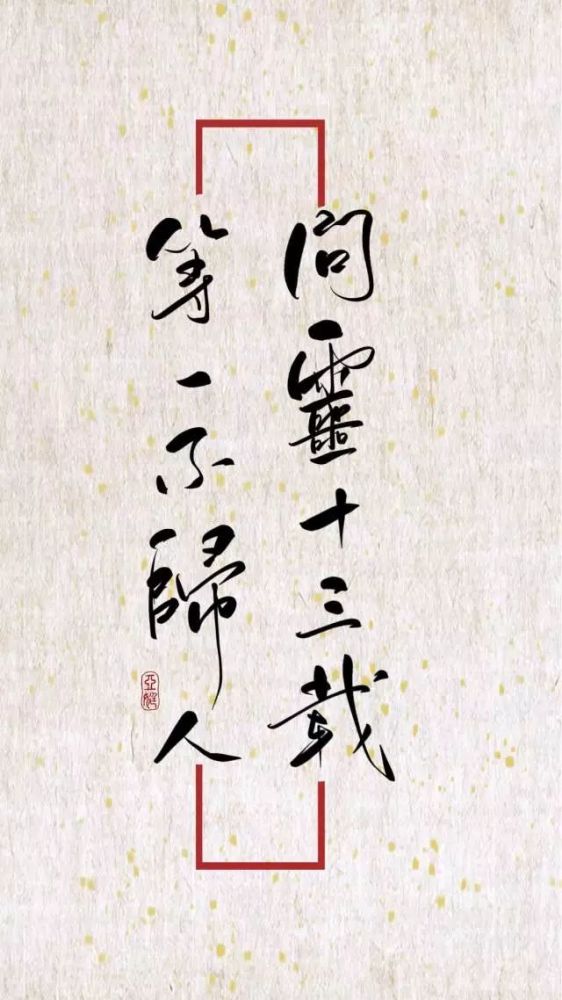 問靈十三载
等一不歸人